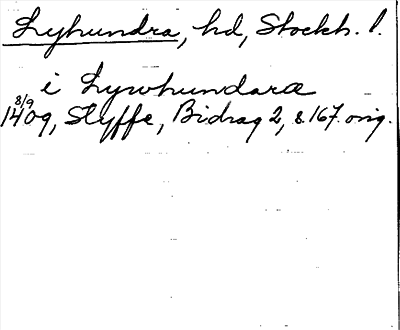 Lyhundra, hd, Stockh. l.
i Lywhundara
8/9
1409, Styffe, Bidrag 2, s. 167. orig.